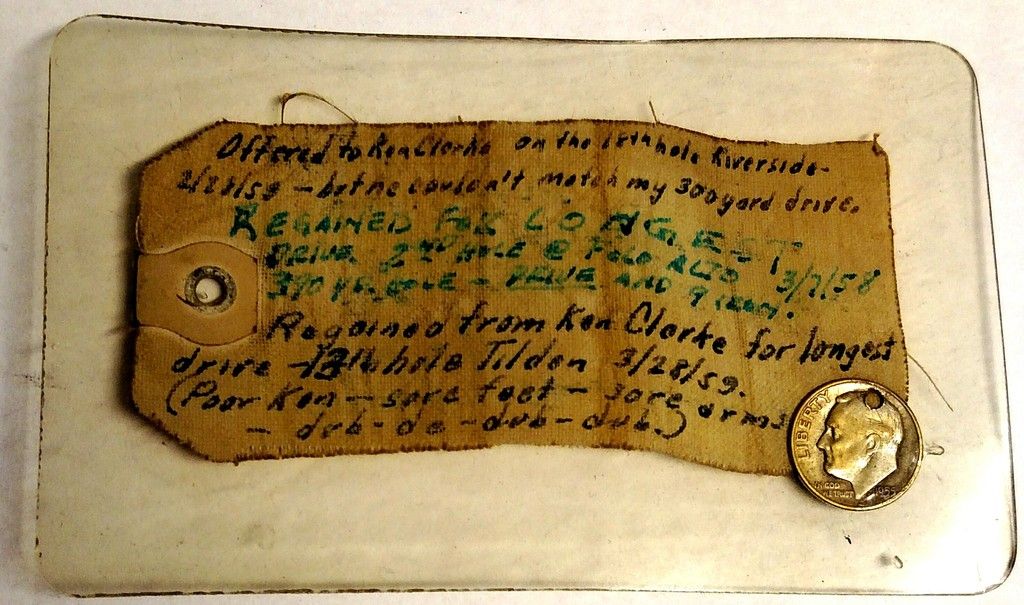 Offered to Ken Clarke on the 18th hole Riverside-
2/28/59 - but he couldn't match my 300 yard drive.
REGAINED FOR LONGEST
DRIVE 2ND HOLE @ PALO ALTO 3/7/58
370 YD. HOLE - DRIVE AND 9 IRON.
Regained from Ken Clarke for longest
drive - 13th hole Tilden 3/28/59.
(Poor Ken - sore feet - sore arms
- dub-de-dub-dub)
LIBERTY
IN GOD
WE TRUST
1955